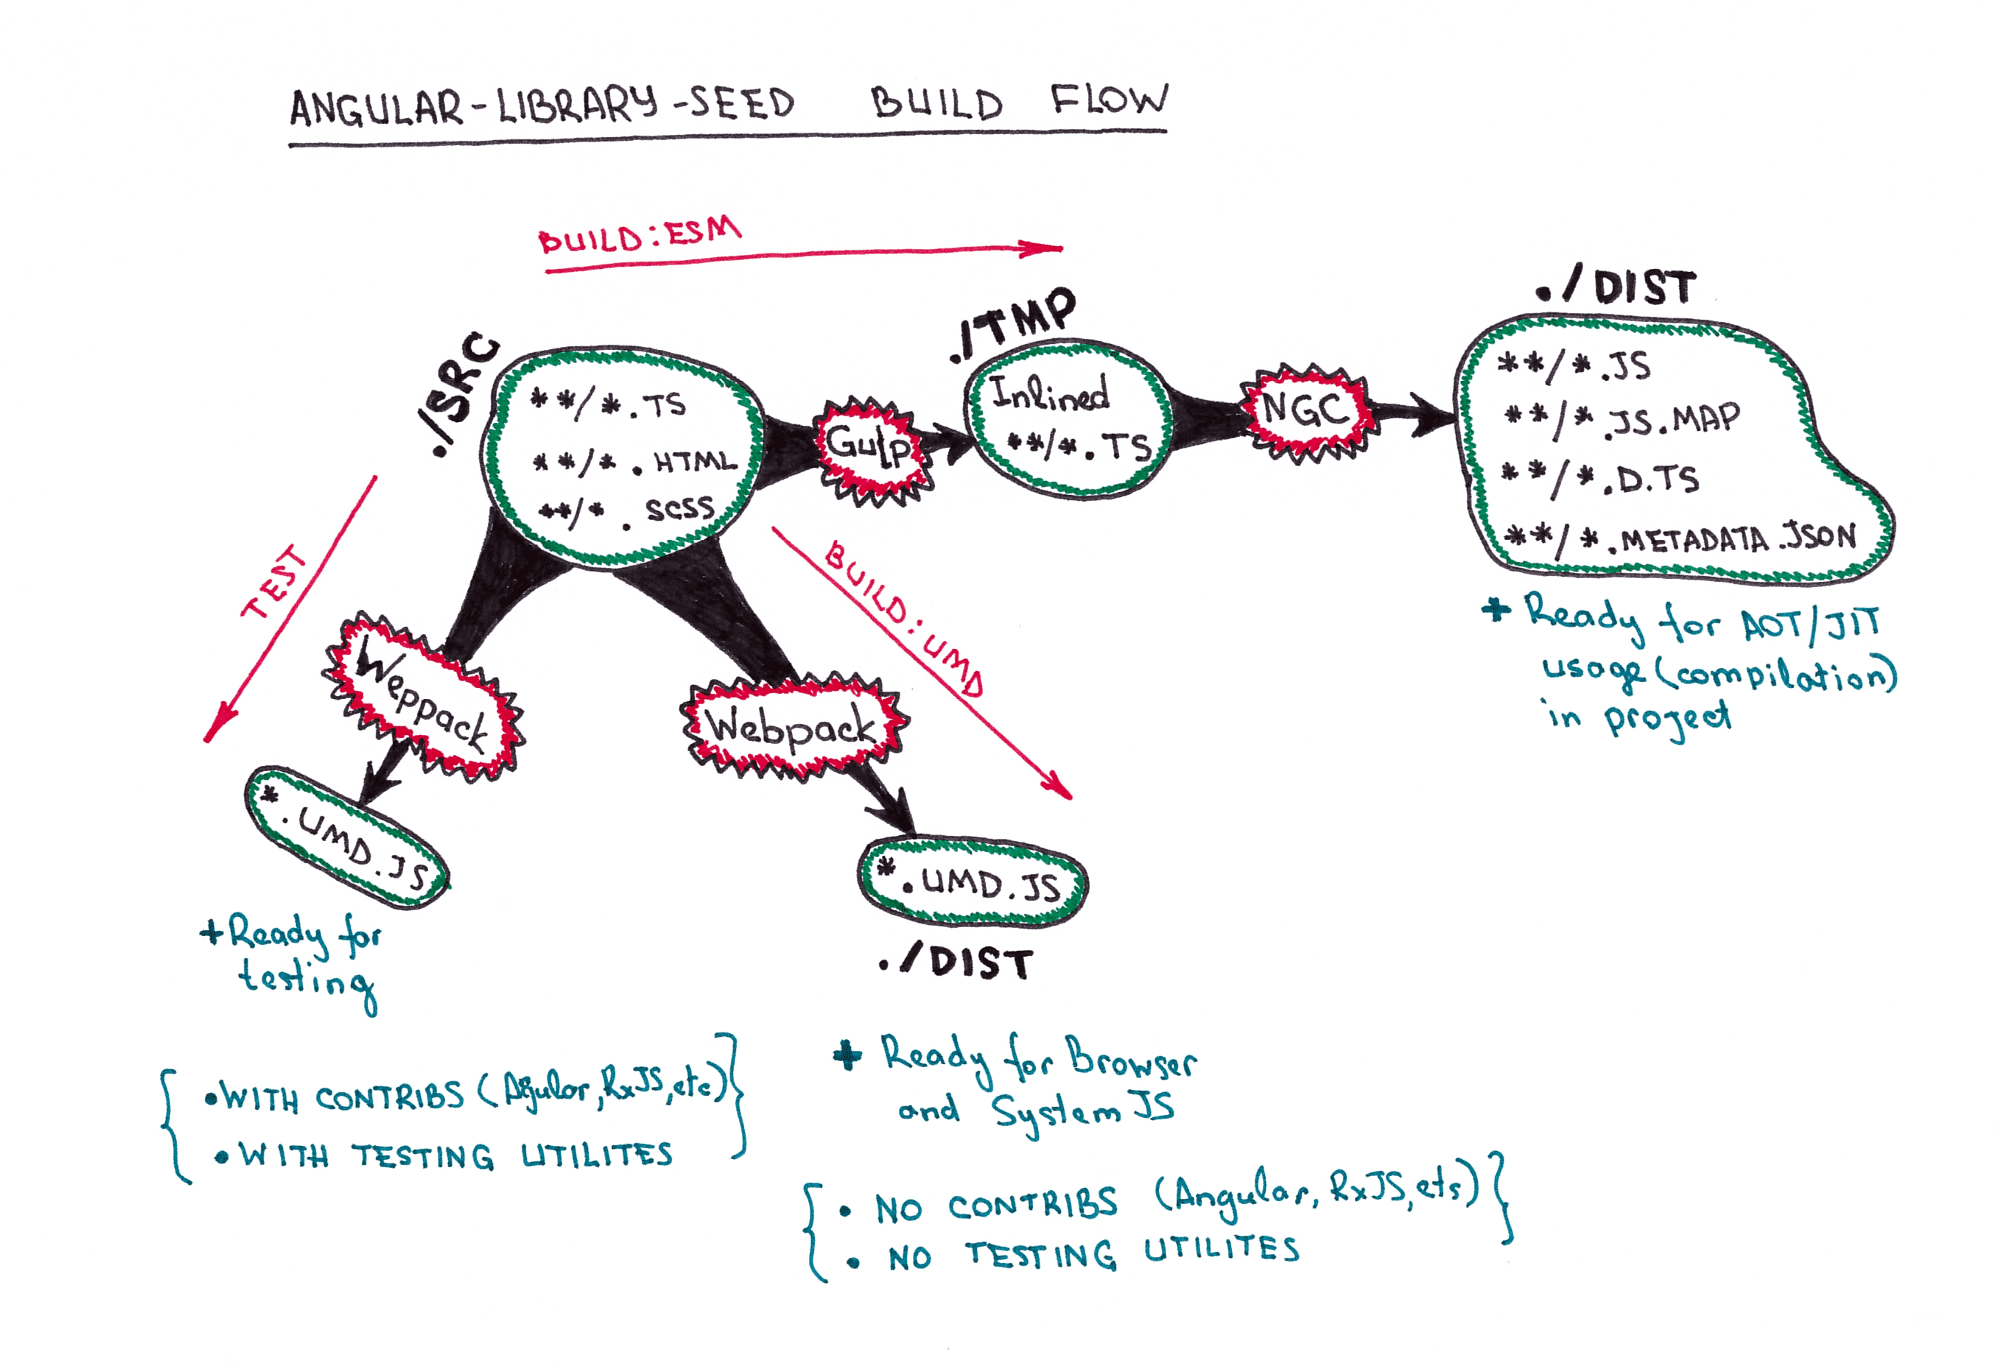 ANGULAR-LIBRARY-SEED BUILD FLOW
BUILD:ESM
./SRC
**/*.TS
**/*.HTML
**/*.SCSS
Gulp
./TMP
Inlined
**/*.TS
NGC
./DIST
**/*.JS
**/*.JS.MAP
**/*.D.TS
**/*.METADATA.JSON
+ Ready for AOT/JIT
usage (compilation)
in project
TEST
Weppack
*.UMD.JS
+ Ready for
testing
{ • WITH CONTRIBS (Agular, RxJS, etc) }
• WITH TESTING UTILITES
BUILD:UMD
Webpack
*.UMD.JS
./DIST
+ Ready for Browser
and System JS
{ • NO CONTRIBS (Angular, RxJS, ets) }
• NO TESTING UTILITES